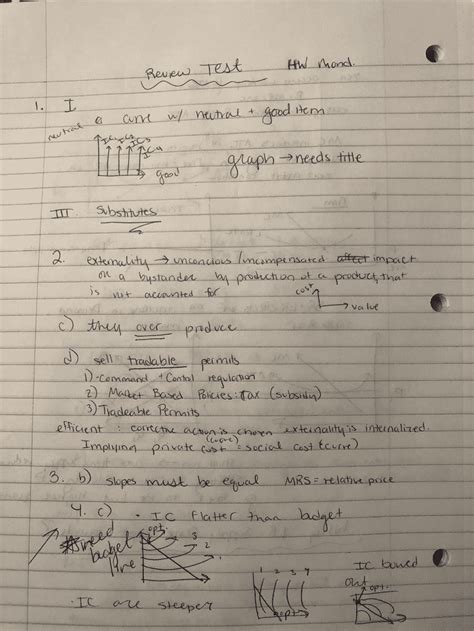 Review Test HW Mond.
1. I
a curve w/ neutral + good item
neutral
IC1 IC2 IC3 IC4
good
graph → needs title
III. Substitutes
2. externality → unconcious/uncompensated affect impact
on a bystander by production of a product, that
is not accounted for
cost
value
c) they over produce
d) sell tradable permits
1) -Command + Control regulation
2) Market Based Policies: Tax (subsidy)
3) Tradeable Permits
efficient : corrective action is chosen externality is internalized.
(curve)
Implying private cost = social cost (curve)
3. b) slopes must be equal MRS = relative price
4. c) · IC flatter than budget
need
budget
line
opt.
3
2
1
· IC are steeper
1 2 3 4
opt.
IC bowed
out
opt.